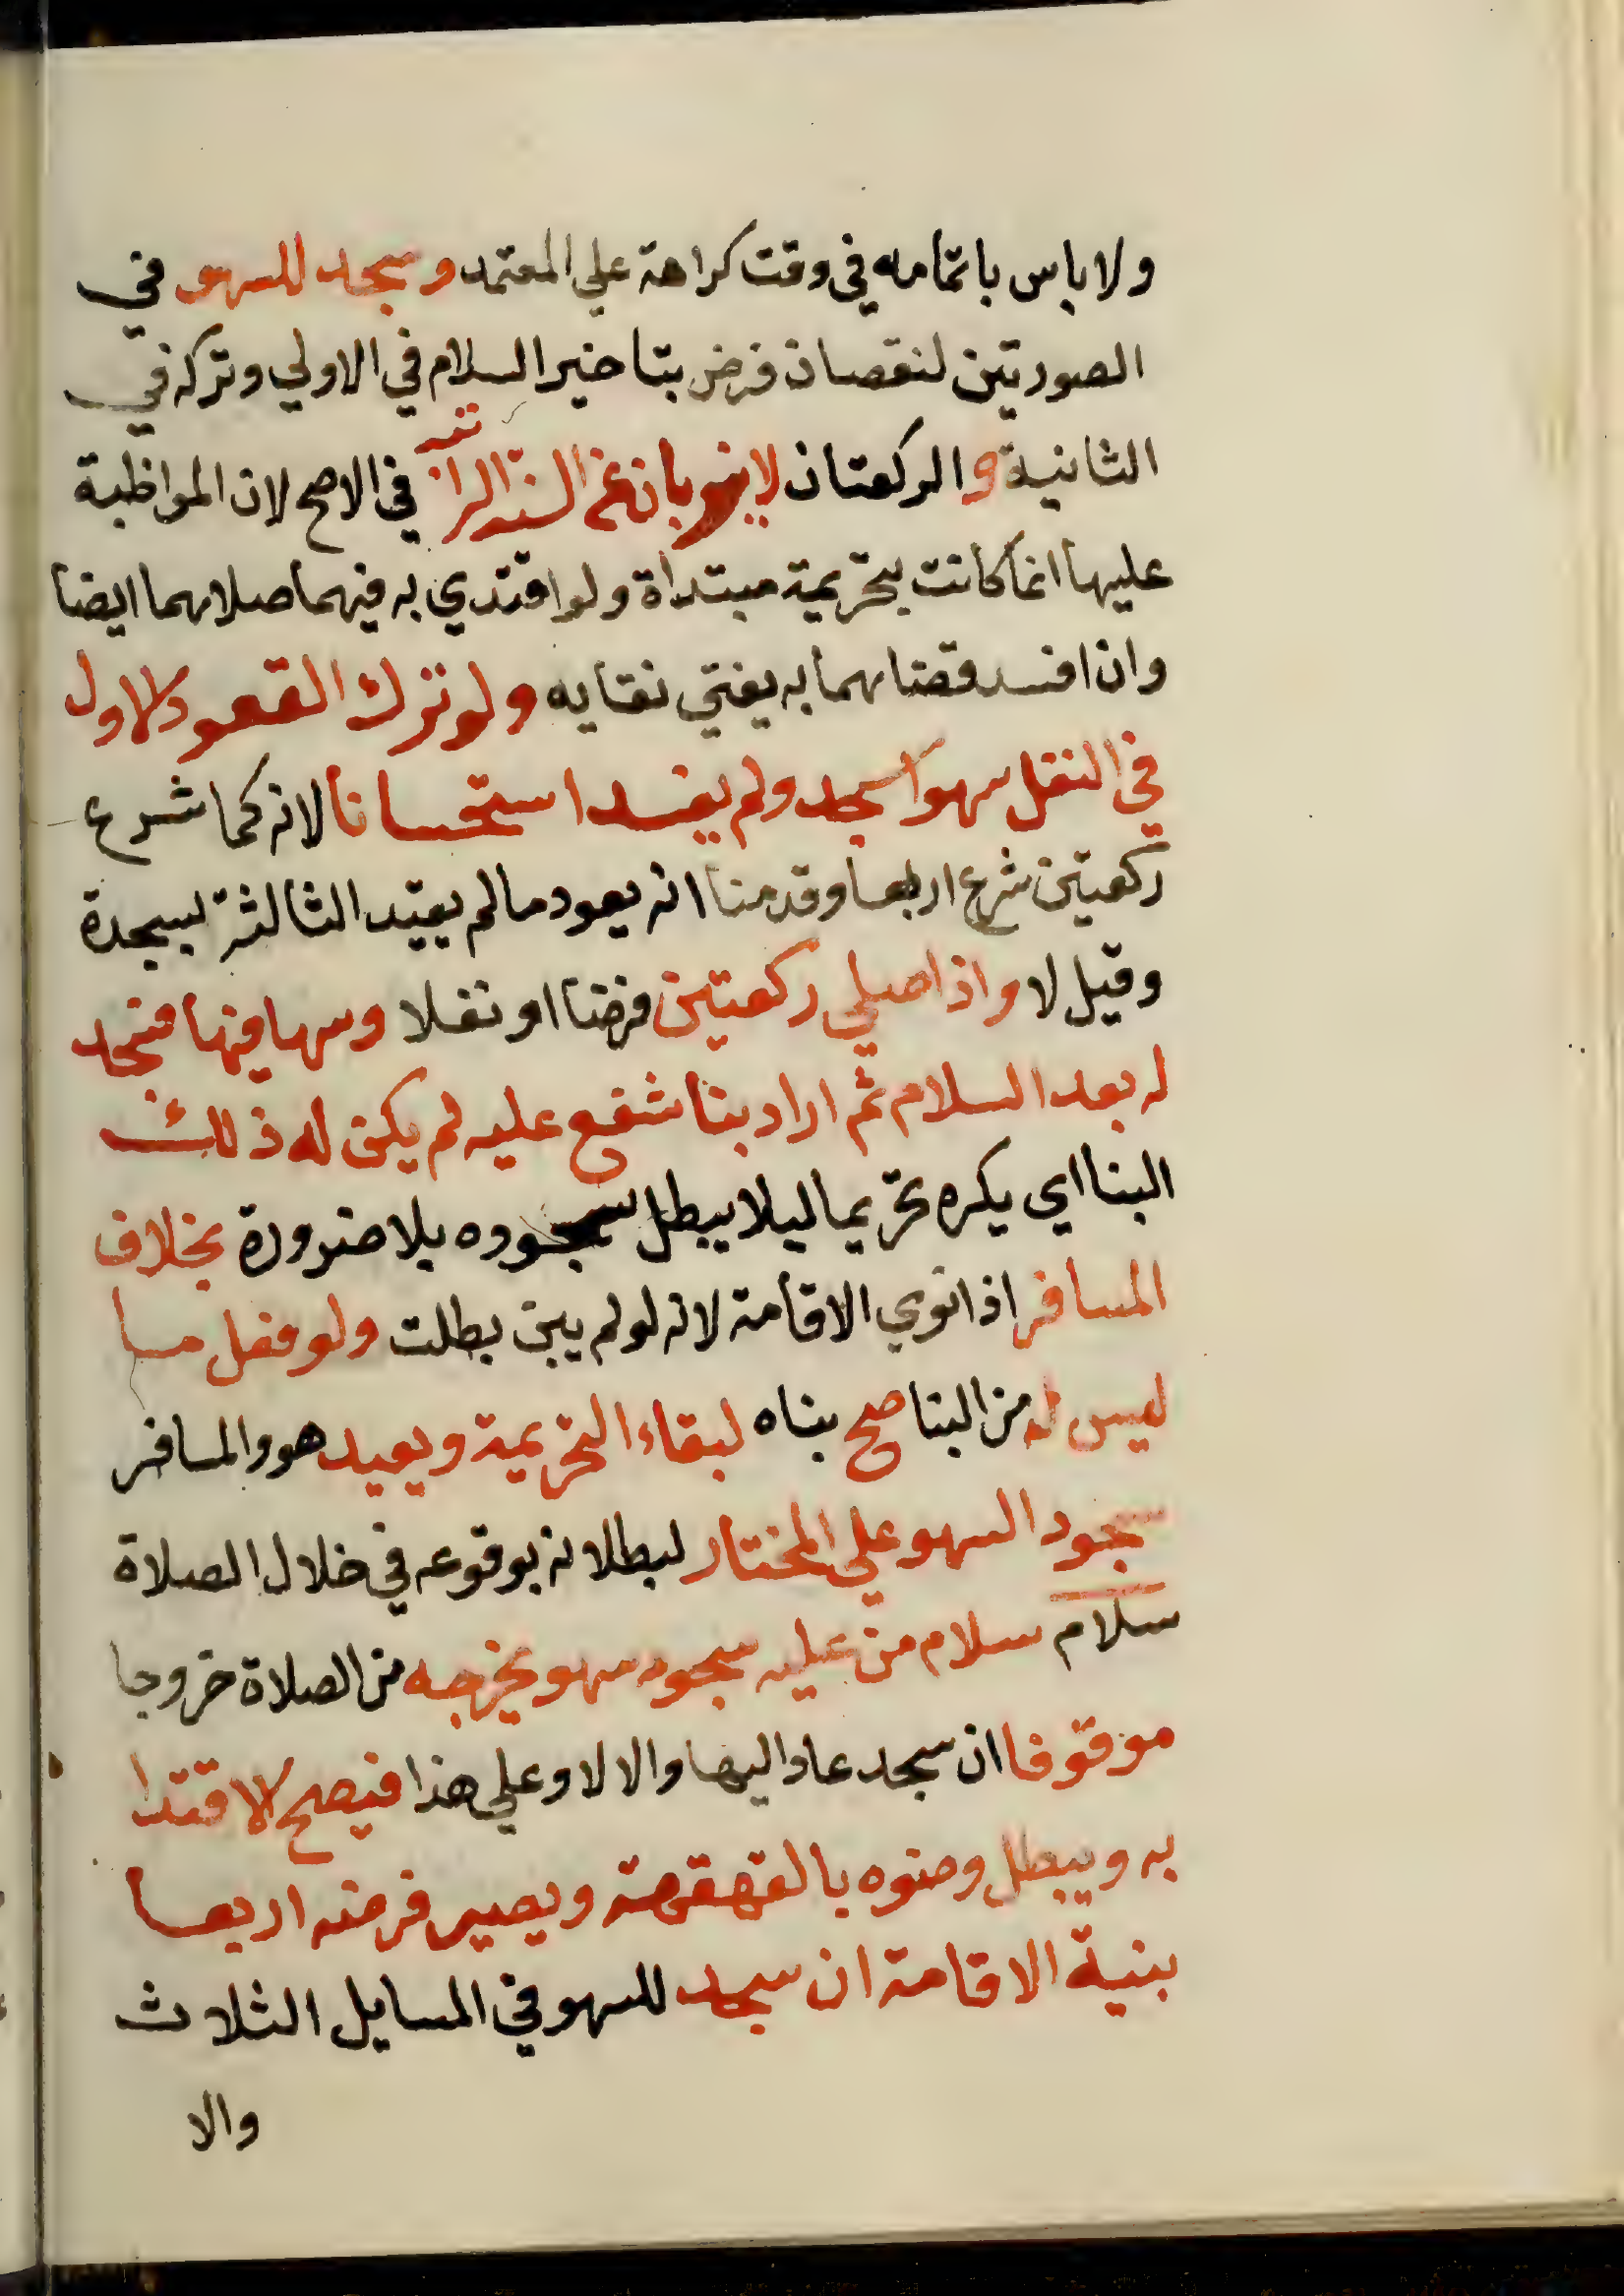 ولا باس باتمامه في وقت كراهة علي المعتمد وسجد للسهو في
الصورتين لنقصان فرض بتاخير السلام في الاولي وتركه في
الثانية والركعتان لا ينوبان عن السنة الراتبة في الاصح لان المواظبة
عليها انما كانت بتحريمة مبتداة ولو اقتدي به فيهما صلاهما ايضا
وان افسد قضاهما به يفتي نقايه ولو ترك القعود الاول
في النفل سهوا سجد ولم يفسد استحسانا لانه كما شرع
ركعتين شرع اربعا وقدمنا انه يعود ما لم يقيد الثالثة بسجدة
وقيل لا واذا صلي ركعتين فرضا او نفلا وسها فيها فسجد
له بعد السلام ثم اراد بنا شفع عليه لم يكن له ذلك
البنا اي يكره تحريما ليلا يبطل سجوده بلا ضرورة بخلاف
المسافر اذا نوي الاقامة لانه لو لم يبن بطلت ولو فعل ما
ليس له من البنا صح بناه لبقاء التحريمة ويعيد هو والمسافر
سجود السهو علي المختار لبطلانه بوقوعه في خلال الصلاة
سلام سلام من عليه سجود سهو يخرجه من الصلاة خروجا
موقوفا ان سجد عاد اليها والا لا وعلي هذا فيصح الاقتدا
به ويبطل وضوه بالقهقهة ويصير فرضه اربعا
بنية الاقامة ان سجد للسهو في المسايل الثلاث
والا